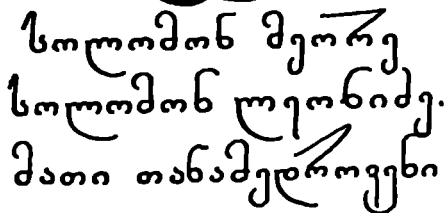 სოლომონ მეორე
სოლომონ ლეონიძე.
მათი თანამედროვენი